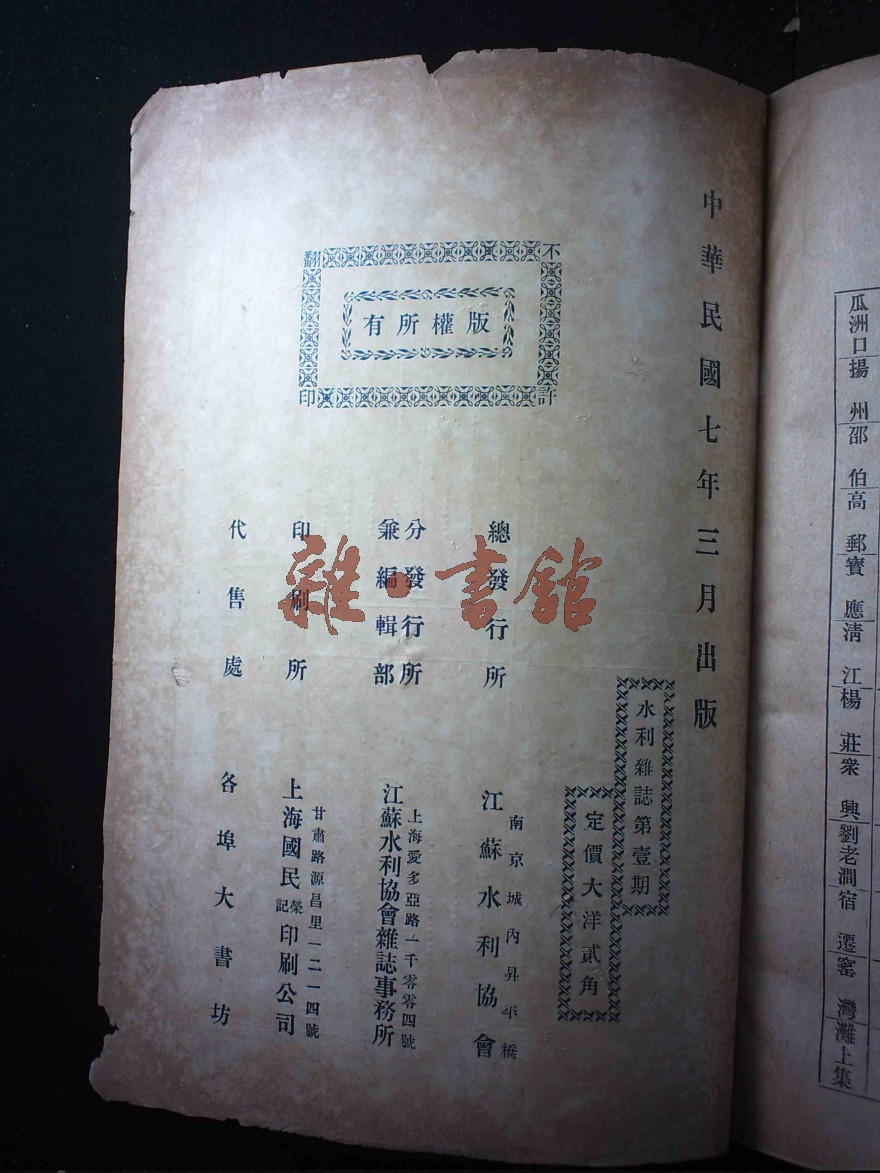 中華民國七年三月出版
水利雜誌第壹期
定價大洋貳角
不許翻印
版權所有
總發行所
南京城內昇平橋
江蘇水利協會
分發行所
兼編輯部
上海愛多亞路一千零零四號
江蘇水利協會雜誌事務所
印刷所
甘肅路源昌里一二一四號
上海國民榮記印刷公司
代售處
各埠大書坊
雜·書館
瓜洲口
揚州
邵伯
高郵
寶應
清江
楊莊
衆興
劉老澗
宿遷
窰灣
灘上集